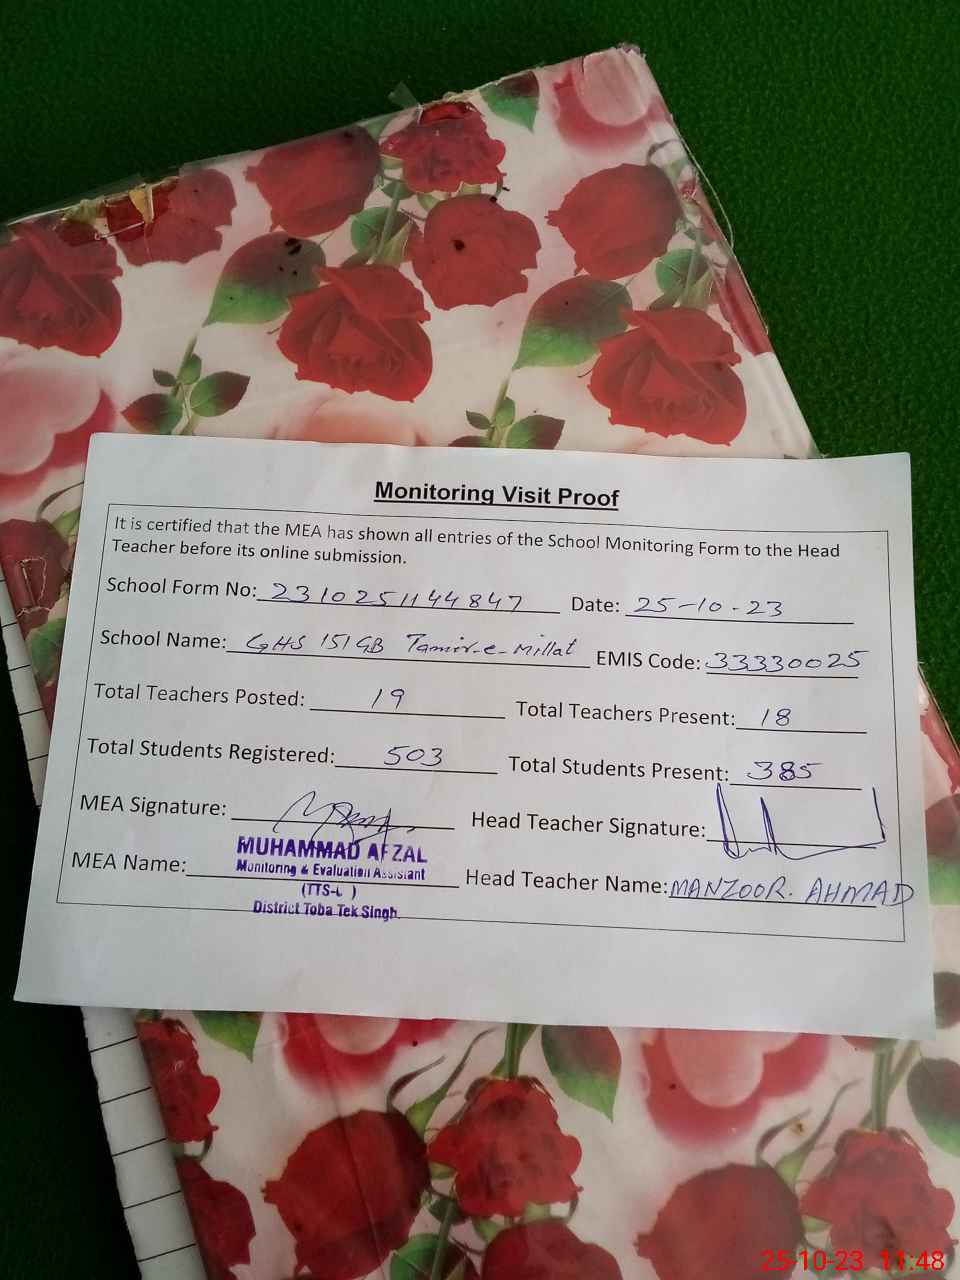 Monitoring Visit Proof
It is certified that the MEA has shown all entries of the School Monitoring Form to the Head
Teacher before its online submission.
School Form No: 2310251144847 Date: 25-10-23
School Name: GHS 151GB Tamir-e-Millat EMIS Code: 33330025
Total Teachers Posted: 19 Total Teachers Present: 18
Total Students Registered: 503 Total Students Present: 385
MEA Signature: Head Teacher Signature:
MEA Name: MUHAMMAD AFZAL Head Teacher Name: MANZOOR. AHMAD
Monitoring & Evaluation Assistant
District Toba Tek Singh
25-10-23 11:48